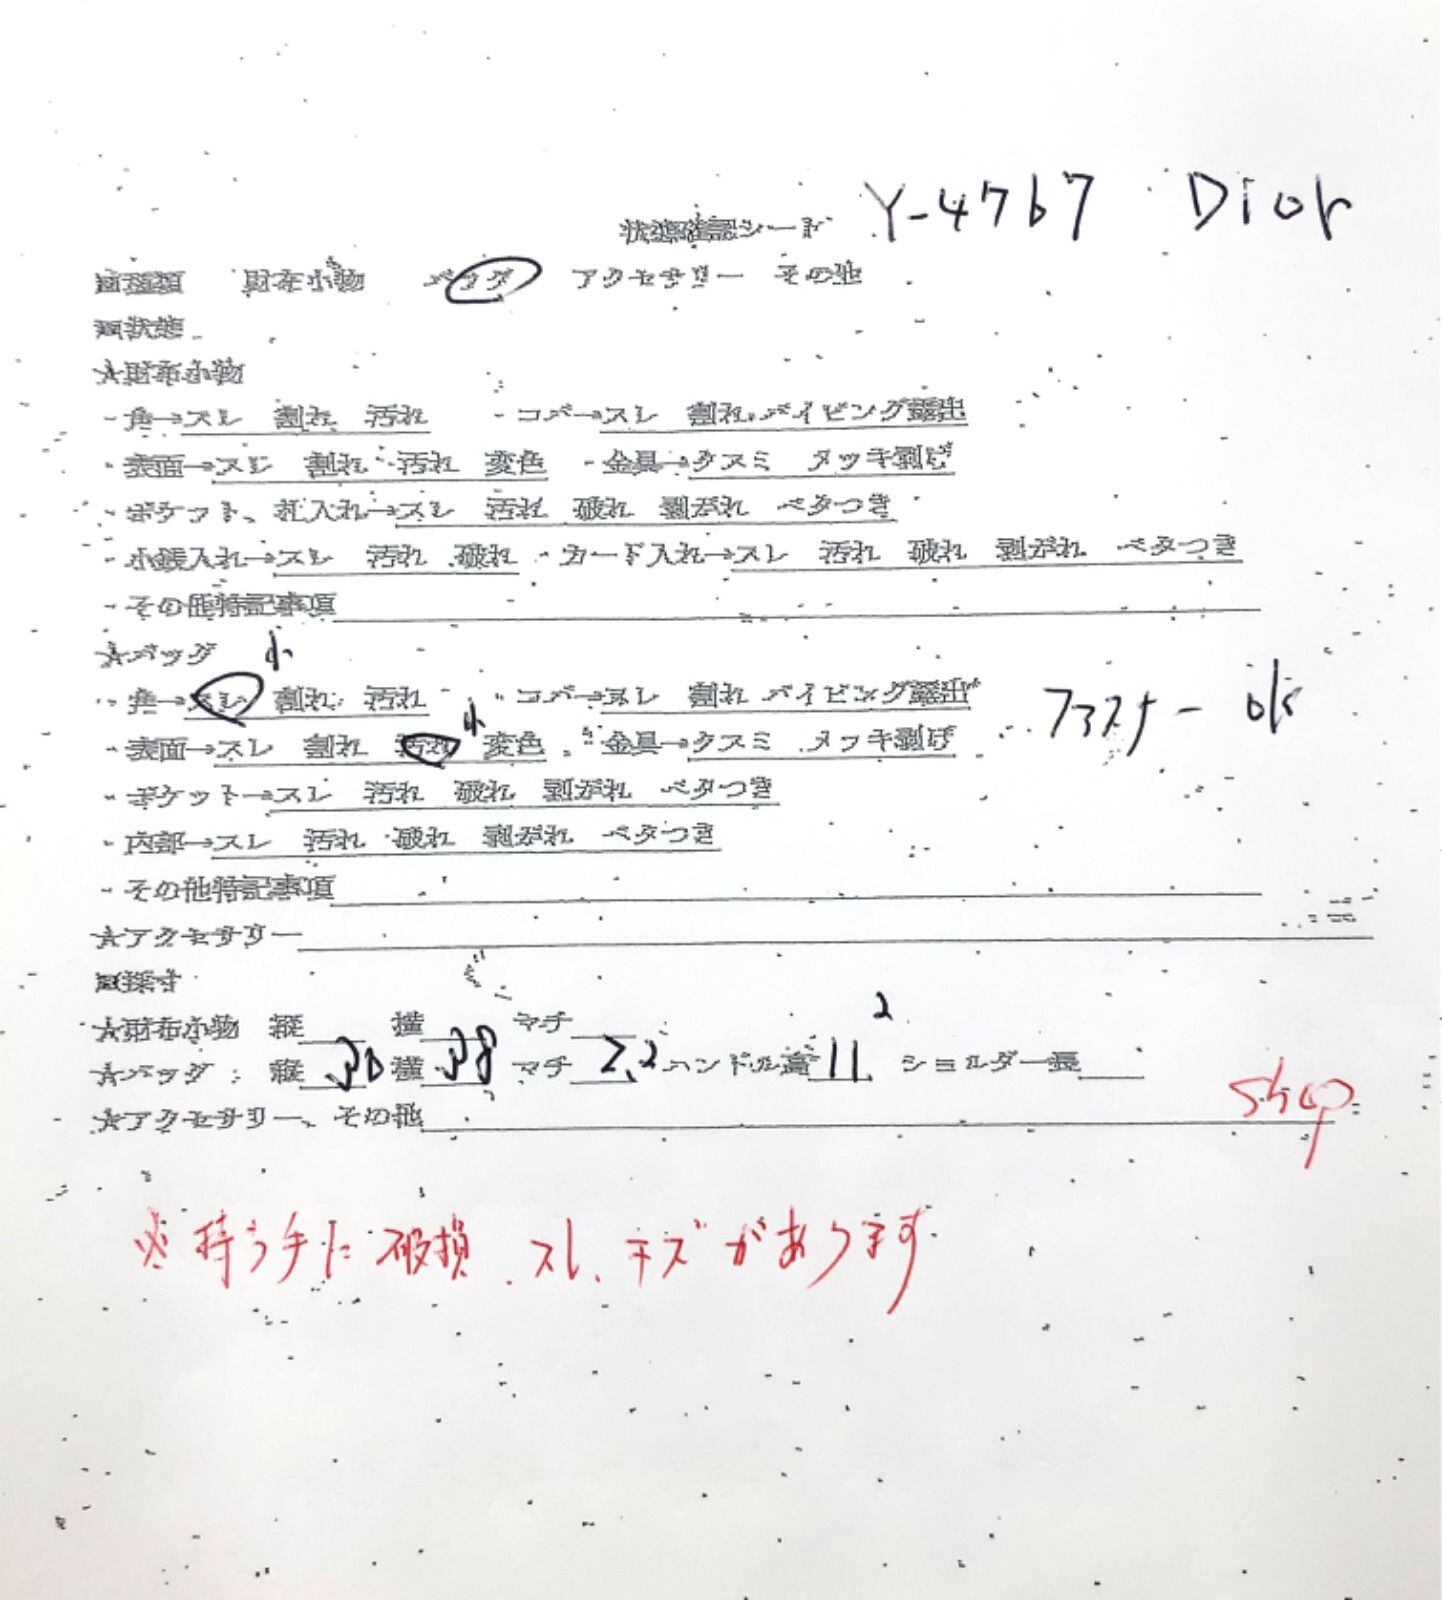 状態確認シート Y-4767 Dior
■種類 財布小物 バッグ アクセサリー その他
■状態
★財布小物
・角→スレ 割れ 汚れ ・コバ→スレ 割れ パイピング露出
・表面→スレ 割れ 汚れ 変色 ・金具→クスミ メッキ剥げ
・ポケット、札入れ→スレ 汚れ 破れ 剥がれ ベタつき
・小銭入れ→スレ 汚れ 破れ ・カード入れ→スレ 汚れ 破れ 剥がれ ベタつき
・その他特記事項
★バッグ 小
・角→スレ 割れ 汚れ ・コバ→スレ 割れ パイピング露出 ファスナー ok
・表面→スレ 割れ 汚れ 小 変色 ・金具→クスミ メッキ剥げ
・ポケット→スレ 汚れ 破れ 剥がれ ベタつき
・内部→スレ 汚れ 破れ 剥がれ ベタつき
・その他特記事項
★アクセサリー
■採寸
★財布小物 縦 横 マチ 2
★バッグ 縦 30 横 38 マチ 22 ハンドル高 11 ショルダー長
★アクセサリー、その他 shop
※持ち手に破損、スレ、キズがあります